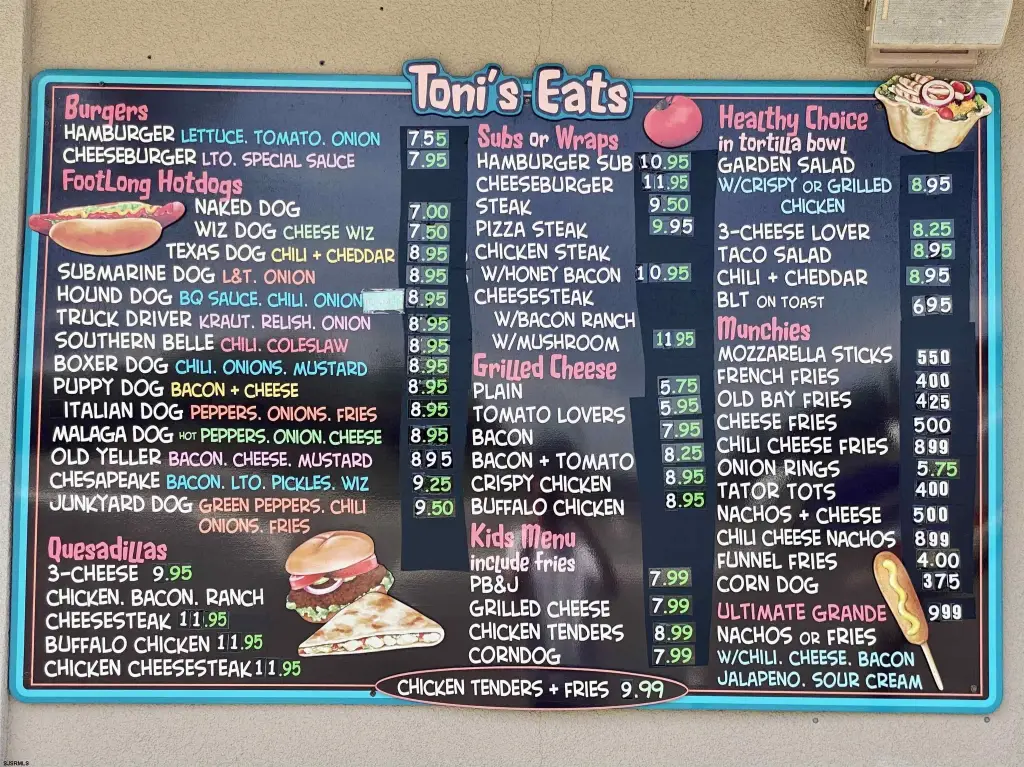 Toni's Eats
Burgers
HAMBURGER LETTUCE. TOMATO. ONION 7.55
CHEESEBURGER LTO. SPECIAL SAUCE 7.95
FootLong Hotdogs
NAKED DOG 7.00
WIZ DOG CHEESE WIZ 7.50
TEXAS DOG CHILI + CHEDDAR 8.95
SUBMARINE DOG L&T. ONION 8.95
HOUND DOG BQ SAUCE. CHILI. ONION 8.95
TRUCK DRIVER KRAUT. RELISH. ONION 8.95
SOUTHERN BELLE CHILI. COLESLAW 8.95
BOXER DOG CHILI. ONIONS. MUSTARD 8.95
PUPPY DOG BACON + CHEESE 8.95
ITALIAN DOG PEPPERS. ONIONS. FRIES 8.95
MALAGA DOG HOT PEPPERS. ONION. CHEESE 8.95
OLD YELLER BACON. CHEESE. MUSTARD 895
CHESAPEAKE BACON. LTO. PICKLES. WIZ 9.25
JUNKYARD DOG GREEN PEPPERS. CHILI 9.50
ONIONS. FRIES
Quesadillas
3-CHEESE 9.95
CHICKEN. BACON. RANCH
CHEESESTEAK 11.95
BUFFALO CHICKEN 11.95
CHICKEN CHEESESTEAK 11.95
Subs or Wraps
HAMBURGER SUB 10.95
CHEESEBURGER 11.95
STEAK 9.50
PIZZA STEAK 9.95
CHICKEN STEAK
W/HONEY BACON 10.95
CHEESESTEAK
W/BACON RANCH
W/MUSHROOM 1195
Grilled Cheese
PLAIN 5.75
TOMATO LOVERS 5.95
BACON 7.95
BACON + TOMATO 8.25
CRISPY CHICKEN 8.95
BUFFALO CHICKEN 8.95
Kids Menu
include fries
PB&J 7.99
GRILLED CHEESE 7.99
CHICKEN TENDERS 8.99
CORNDOG 7.99
Healthy Choice
in tortilla bowl
GARDEN SALAD
W/CRISPY OR GRILLED 8.95
CHICKEN
3-CHEESE LOVER 8.25
TACO SALAD 8.95
CHILI + CHEDDAR 8.95
BLT ON TOAST 695
Munchies
MOZZARELLA STICKS 550
FRENCH FRIES 400
OLD BAY FRIES 425
CHEESE FRIES 500
CHILI CHEESE FRIES 899
ONION RINGS 5.75
TATOR TOTS 400
NACHOS + CHEESE 500
CHILI CHEESE NACHOS 899
FUNNEL FRIES 4.00
CORN DOG 375
ULTIMATE GRANDE 999
NACHOS OR FRIES
W/CHILI. CHEESE. BACON
JALAPENO. SOUR CREAM
CHICKEN TENDERS + FRIES 9.99
SJSRMLS